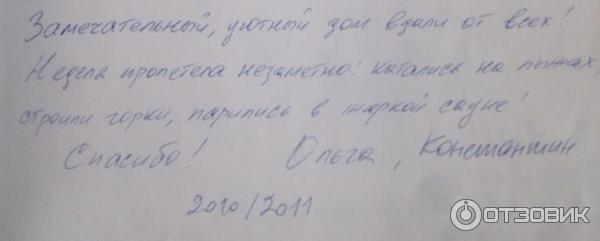 Замечательный, уютный дом вдали от всех!
Неделя пролетела незаметно: катались на лыжах,
строили горки, парились в жаркой сауне!
Спасибо! Ольга, Константин
2010/2011
ОТЗОВИК